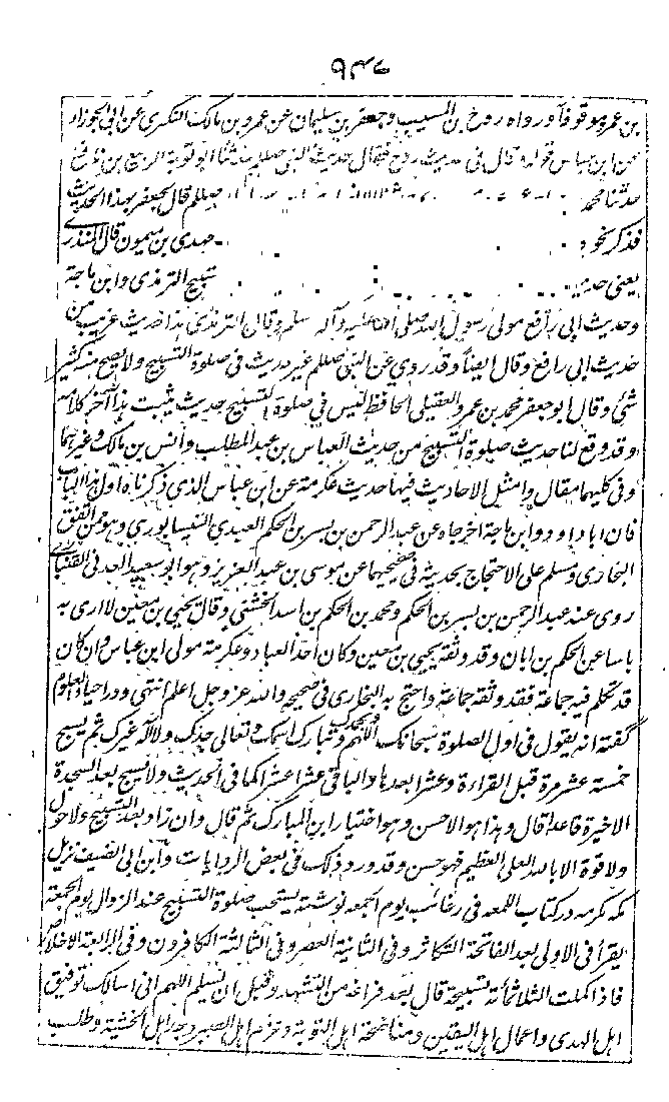 ۹۳۷
بن عمرو موقوفا ورواه روح بن المسيب وجعفر بن سليمان عن عمرو بن مالك النكرى عن ابى الجوزاء
عن ابن عباس قوله قال فى حديث روح فقال حديث النبى صلعم حدثنا ابو توبة الربيع بن نافع
حدثنا محمد صلعم قال لجعفر بهذا الحديث
فذكر نحو مهدى بن ميمون قال المنذرى
يعنى تسبيح الترمذى وابن ماجة
وحديث ابى رافع مولى رسول الله صلى الله عليه وآله وسلم وقال الترمذى هذا حديث غريب من
حديث ابى رافع وقال ايضا وقد روى عن النبى صلعم غير حديث فى صلوة التسبيح ولا يصح منه كثير
شئ وقال ابو جعفر محمد بن عمرو العقيلى الحافظ ليس فى صلوة التسبيح حديث يثبت هذا آخر كلامه
وقد وقع لنا حديث صلوة التسبيح من حديث العباس بن عبد المطلب وانس بن مالك وغيرهما
وفى كليهما مقال وامثل الاحاديث فيها حديث عكرمة عن ابن عباس الذى ذكرناه اول هذا الباب
فان ابا داود وابن ماجة اخرجاه عن عبد الرحمن بن بسر بن الحكم العبدى النيسابورى وهو ممن اتفق
البخارى ومسلم على الاحتجاج بحديثه فى صحيحيهما عن موسى بن عبد العزيز وهو ابو سعيد العدنى القنبارى
روى عنه عبد الرحمن بن بسر بن الحكم ومحمد بن الحكم بن اسد الخشنى وقال يحيى بن معين لا ارى به
باسا عن الحكم بن ابان وقد وثقه يحيى بن معين وكان احد العباد وعكرمة مولى ابن عباس وان كان
قد تكلم فيه جماعة فقد وثقه جماعة واحتج به البخارى فى صحيحه والله عز وجل اعلم انتهى ودر احياء العلوم
گفته انه يقول فى اول الصلوة سبحانك اللهم وبحمدك وتبارك اسمك وتعالى جدك ولا اله غيرك ثم يسبح
خمسة عشر مرة قبل القراءة وعشرا بعدها والباقى عشرا عشرا كما فى الحديث ولا يسبح بعد السجدة
الاخيرة قاعدا قال وهذا هو الاحسن وهو اختيار ابن المبارك ثم قال وان زاد بعد التسبيح ولا حول
ولا قوة الا بالله العلى العظيم فهو حسن وقد ورد ذلك فى بعض الروايات وابن ابى الضيف نزيل
مكه مكرمه در كتاب اللمعه فى رغائب يوم الجمعه نوشته يستحب صلوة التسبيح عند الزوال يوم الجمعة
يقرأ فى الاولى بعد الفاتحة التكاثر وفى الثانية العصر وفى الثالثة الكافرون وفى الرابعة الاخلاص
فاذا كملت الثلاثمائة تسبيحة قال بعد فراغه من التشهد وقبل ان يسلم اللهم انى اسالك توفيق
اهل الهدى واعمال اهل اليقين ومناصحة اهل التوبة وعزم اهل الصبر وجد اهل الخشية وطلب